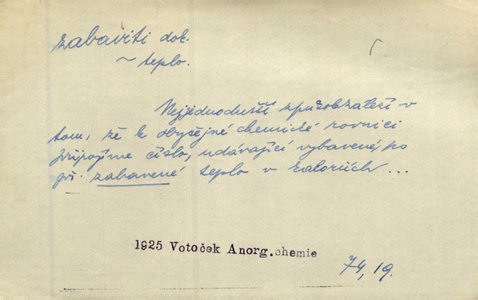 zabaviti dok.
~ teplo.
Nejjednodušší způsob záleží v
tom, že k obyčejné chemické rovnici
připojíme číslo, udávající vybavené, po
př. zabavené teplo v kaloriích ...
1925 Votoček Anorg.chemie
74, 19.